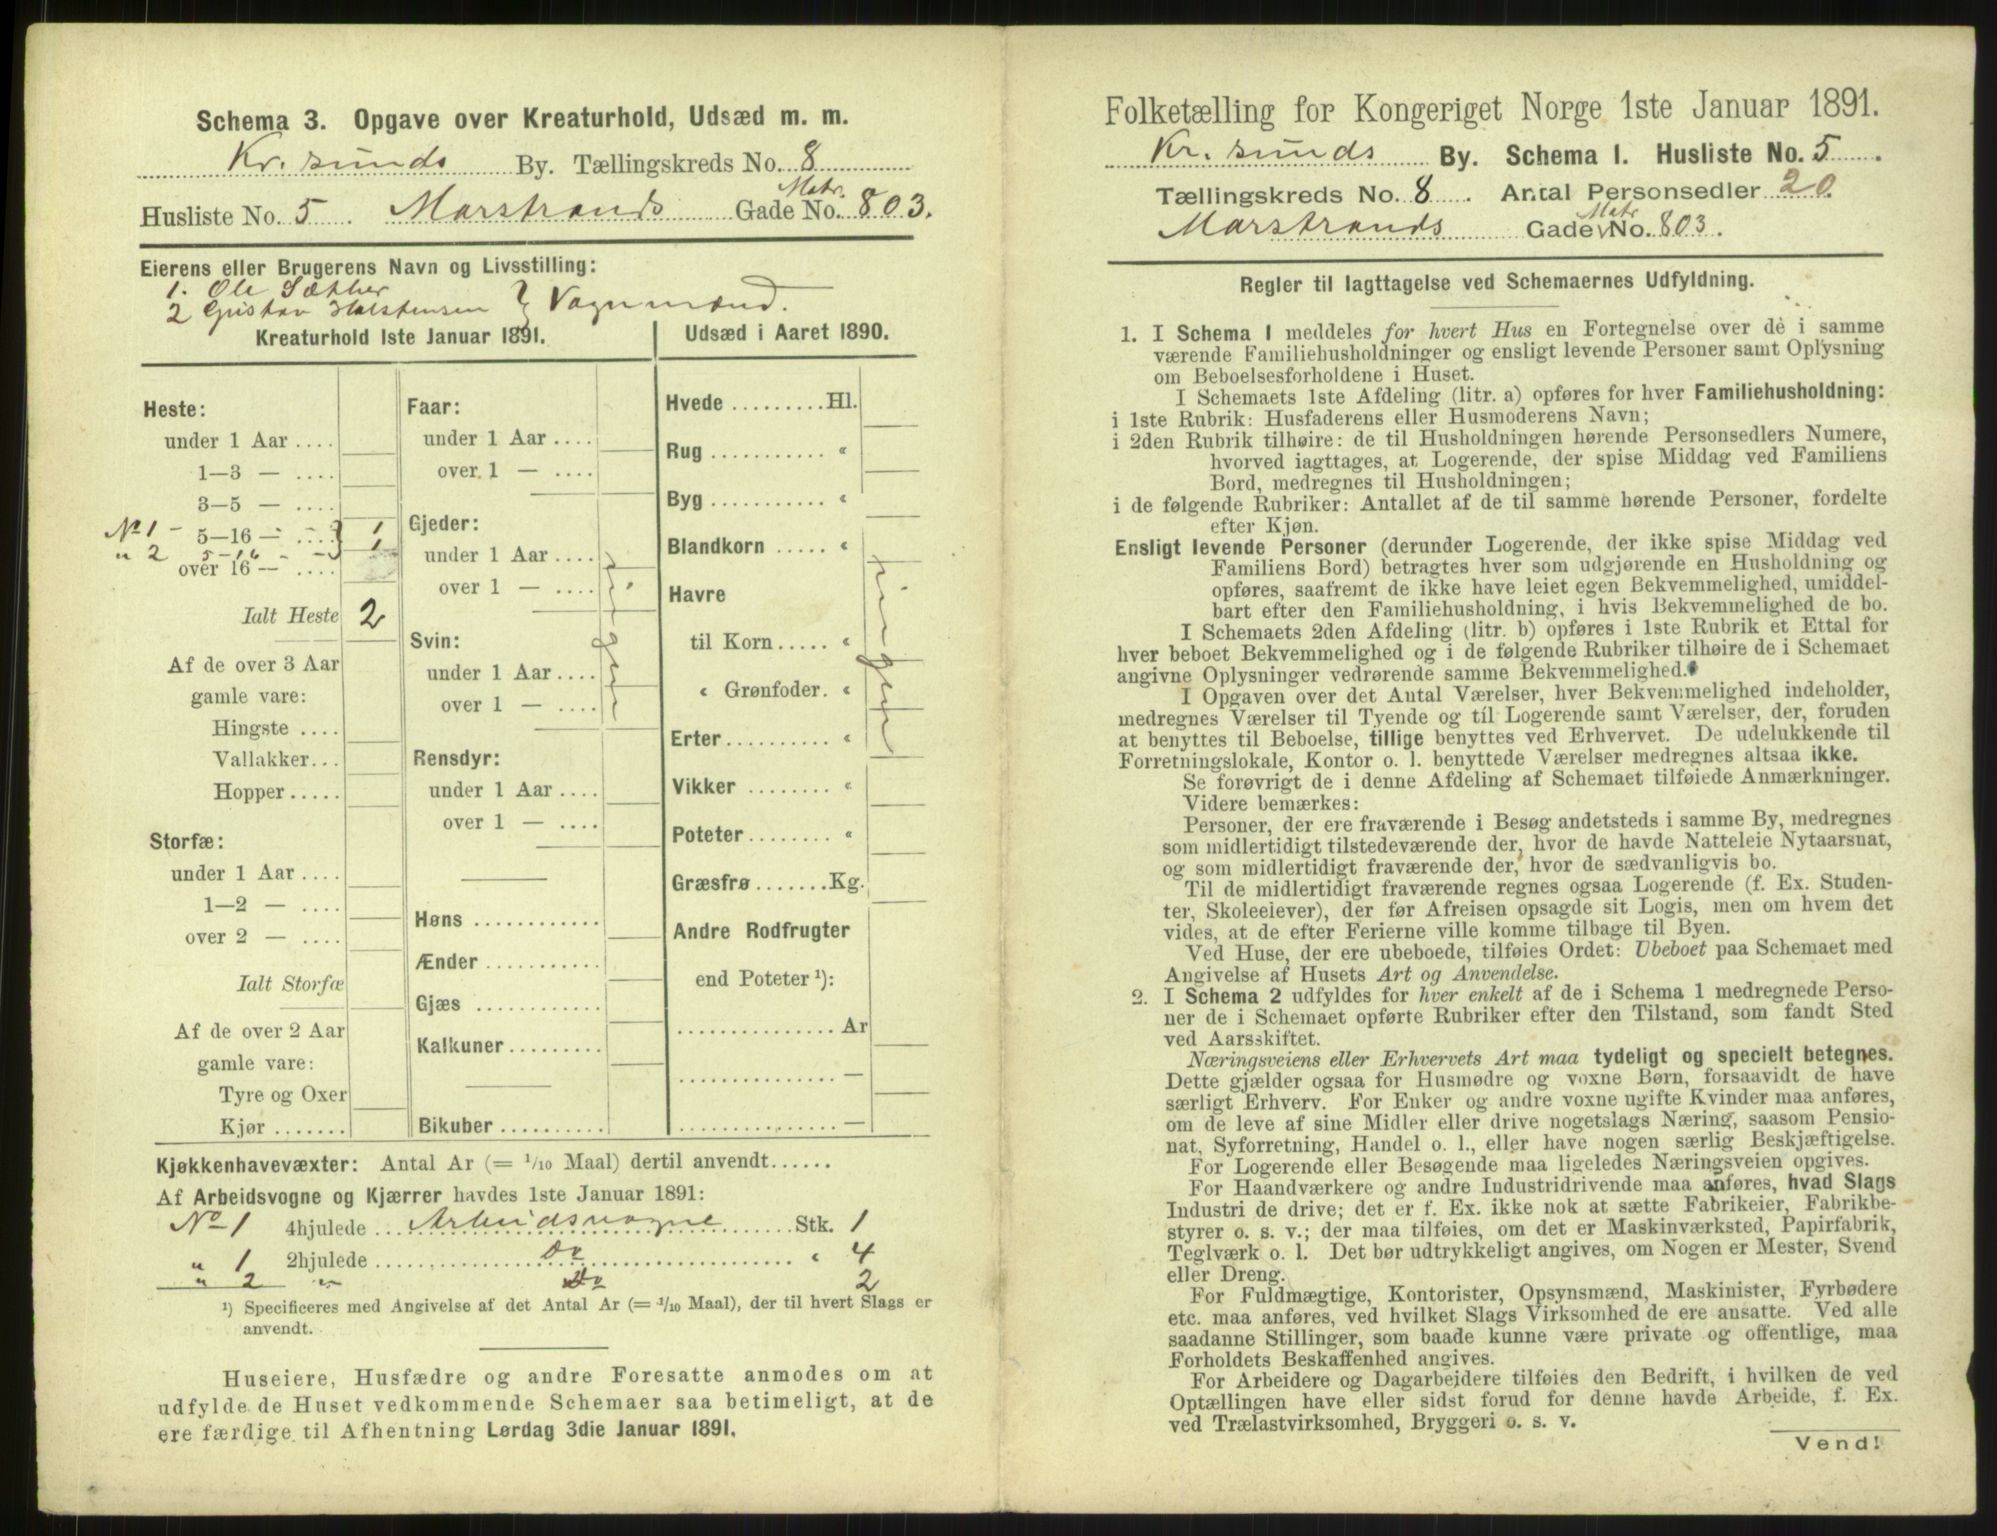 Schema 3. Opgave over Kreaturhold, Udsæd m. m.
Kr. sunds By. Tællingskreds No. 8
Husliste No. 5. Marstrands Gade Matr. No. 803.
Eierens eller Brugerens Navn og Livsstilling:
1. Ole Sæther
2 Gustav Halstensen } Vognmænd.
Kreaturhold 1ste Januar 1891.
Heste:
under 1 Aar ....
1—3 — ....
3—5 — ....
No 1 - 5—16 — .... 1
" 2 5-16 - - 1
over 16 — ....
Ialt Heste 2
Af de over 3 Aar
gamle vare:
Hingste ....
Vallakker...
Hopper .....
Storfæ:
under 1 Aar ....
1—2 — ....
over 2 — ....
Ialt Storfæ
Af de over 2 Aar
gamle vare:
Tyre og Oxer
Kjør .......
Faar:
under 1 Aar ....
over 1 — ....
Gjeder:
under 1 Aar ....
over 1 — ....
Svin:
under 1 Aar ....
over 1 — ....
Rensdyr:
under 1 Aar ....
over 1 — ....
Høns ............
Ænder ...........
Gjæs ............
Kalkuner .........
Bikuber ..........
ingen
Udsæd i Aaret 1890.
Hvede ......... Hl.
Rug ........... «
Byg ........... «
Blandkorn ..... «
Havre
til Korn ..... «
« Grønfoder. «
Erter .......... «
Vikker ........ «
Poteter ........ «
Græsfrø ....... Kg.
Andre Rodfrugter
end Poteter ¹):
............... Ar
............... —
............... —
ingen
Kjøkkenhavevæxter: Antal Ar (= 1/10 Maal) dertil anvendt......
Af Arbeidsvogne og Kjærrer havdes 1ste Januar 1891:
No 1 4hjulede Arbeidsvogne Stk. 1
" 1 2hjulede Do « 4
" 2 " Do 2
¹) Specificeres med Angivelse af det Antal Ar (= 1/10 Maal), der til hvert Slags er
anvendt.
Huseiere, Husfædre og andre Foresatte anmodes om at
udfylde de Huset vedkommende Schemaer saa betimeligt, at de
ere færdige til Afhentning Lørdag 3die Januar 1891.
Folketælling for Kongeriget Norge 1ste Januar 1891.
Kr. sunds By. Schema 1. Husliste No. 5.
Tællingskreds No. 8. Antal Personsedler 20.
Marstrands Gade Matr No. 803.
Regler til Iagttagelse ved Schemaernes Udfyldning.
1. I Schema 1 meddeles for hvert Hus en Fortegnelse over de i samme
værende Familiehusholdninger og ensligt levende Personer samt Oplysning
om Beboelsesforholdene i Huset.
I Schemaets 1ste Afdeling (litr. a) opføres for hver Familiehusholdning:
i 1ste Rubrik: Husfaderens eller Husmoderens Navn;
i 2den Rubrik tilhøire: de til Husholdningen hørende Personsedlers Numere,
hvorved iagttages, at Logerende, der spise Middag ved Familiens
Bord, medregnes til Husholdningen;
i de følgende Rubriker: Antallet af de til samme hørende Personer, fordelte
efter Kjøn.
Ensligt levende Personer (derunder Logerende, der ikke spise Middag ved
Familiens Bord) betragtes hver som udgjørende en Husholdning og
opføres, saafremt de ikke have leiet egen Bekvemmelighed, umiddel-
bart efter den Familiehusholdning, i hvis Bekvemmelighed de bo.
I Schemaets 2den Afdeling (litr. b) opføres i 1ste Rubrik et Ettal for
hver beboet Bekvemmelighed og i de følgende Rubriker tilhøire de i Schemaet
angivne Oplysninger vedrørende samme Bekvemmelighed.
I Opgaven over det Antal Værelser, hver Bekvemmelighed indeholder,
medregnes Værelser til Tyende og til Logerende samt Værelser, der, foruden
at benyttes til Beboelse, tillige benyttes ved Erhvervet. De udelukkende til
Forretningslokale, Kontor o. l. benyttede Værelser medregnes altsaa ikke.
Se forøvrigt de i denne Afdeling af Schemaet tilføiede Anmærkninger.
Videre bemærkes:
Personer, der ere fraværende i Besøg andetsteds i samme By, medregnes
som midlertidigt tilstedeværende der, hvor de havde Natteleie Nytaarsnat,
og som midlertidigt fraværende der, hvor de sædvanligvis bo.
Til de midlertidigt fraværende regnes ogsaa Logerende (f. Ex. Studen-
ter, Skoleeiever), der før Afreisen opsagde sit Logis, men om hvem det
vides, at de efter Ferierne ville komme tilbage til Byen.
Ved Huse, der ere ubeboede, tilføies Ordet: Ubeboet paa Schemaet med
Angivelse af Husets Art og Anvendelse.
2. I Schema 2 udfyldes for hver enkelt af de i Schema 1 medregnede Perso-
ner de i Schemaet opførte Rubriker efter den Tilstand, som fandt Sted
ved Aarsskiftet.
Næringsveiens eller Erhvervets Art maa tydeligt og specielt betegnes.
Dette gjælder ogsaa for Husmødre og voxne Børn, forsaavidt de have
særligt Erhverv. For Enker og andre voxne ugifte Kvinder maa anføres,
om de leve af sine Midler eller drive nogetslags Næring, saasom Pensio-
nat, Syforretning, Handel o. l., eller have nogen særlig Beskjæftigelse.
For Logerende eller Besøgende maa ligeledes Næringsveien opgives.
For Haandværkere og andre Industridrivende maa anføres, hvad Slags
Industri de drive; det er f. Ex. ikke nok at sætte Fabrikeier, Fabrikbe-
styrer o. s. v.; der maa tilføies, om det er Maskinværksted, Papirfabrik,
Teglværk o. l. Det bør udtrykkeligt angives, om Nogen er Mester, Svend
eller Dreng.
For Fuldmægtige, Kontorister, Opsynsmænd, Maskinister, Fyrbødere
etc. maa anføres, ved hvilket Slags Virksomhed de ere ansatte. Ved alle
saadanne Stillinger, som baade kunne være private og offentlige, maa
Forholdets Beskaffenhed angives.
For Arbeidere og Dagarbejdere tilføies den Bedrift, i hvilken de ved
Optællingen have eller sidst forud for denne havde Arbeide, f. Ex.
ved Trælastvirksomhed, Bryggeri o. s. v.
Vend!